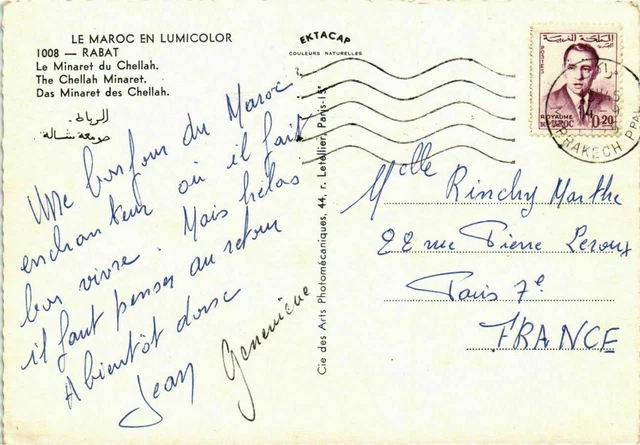 LE MAROC EN LUMICOLOR
1008 — RABAT
Le Minaret du Chellah.
The Chellah Minaret.
Das Minaret des Chellah.
الرباط
صومعة شالة
EKTACAP
COULEURS NATURELLES
Une bonjour du Maroc
enchanteur où il fait
bon vivre. Mais hélas
il faut penser au retour
A bientôt donc
Jean Geneviève
Cie des Arts Photomécaniques, 44, r. Letellier, Paris-15e
المملكة المغربية
POSTES
ROYAUME
DU MAROC 0,20
MARRAKECH PPAL
Melle Rinchy Marthe
22 rue Pierre Leroux
Paris 7e
FRANCE